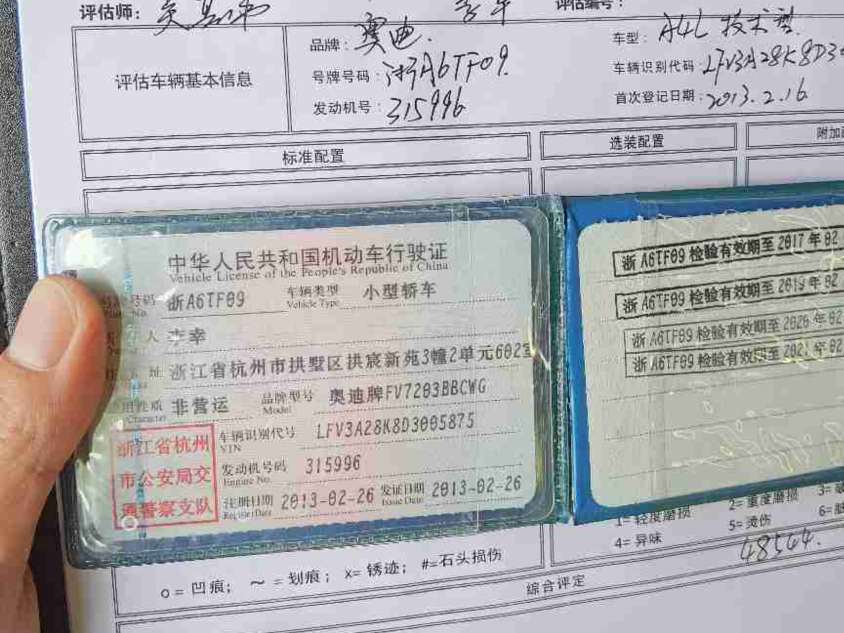 评估师:
评估编号:
评估车辆基本信息
品牌: 奥迪.
车型: A4L 技术型
号牌号码: 浙A6TF09.
车辆识别代码: LFV3A28K8D30
发动机号: 315996
首次登记日期: 2013.2.16
标准配置
选装配置
附加
中华人民共和国机动车行驶证
Vehicle License of the People's Republic of China
号码 浙A6TF09 车辆类型 小型轿车
No. Vehicle Type
人 李幸
址 浙江省杭州市拱墅区拱宸新苑3幢2单元602室
性质 非营运 品牌型号 奥迪牌FV7203BBCWG
Character Model
浙江省杭州
市公安局交
通警察支队
车辆识别代号 LFV3A28K8D3005875
VIN
发动机号码 315996
Engine No.
注册日期 2013-02-26 发证日期 2013-02-26
Register Date Issue Date
浙A6TF09 检验有效期至 2017年02
浙A6TF09 检验有效期至 2019年02
浙A6TF09 检验有效期至 2020年02
浙A6TF09 检验有效期至 2021年02
1= 轻度磨损 2= 重度磨损 3=
4= 异味 5= 烫伤 6=
48544.
o = 凹痕; ~ = 划痕; x= 锈迹; #=石头损伤
综合评定